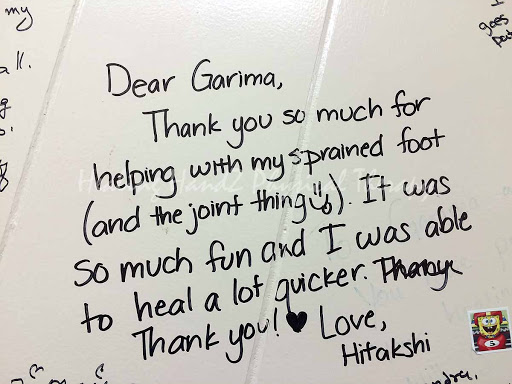 my
goes
Dear Garima,
Thank you so much for
helping with my sprained foot
(and the joint thing). It was
so much fun and I was able
to heal a lot quicker.
Thank you! ♥ Love,
Hitakshi